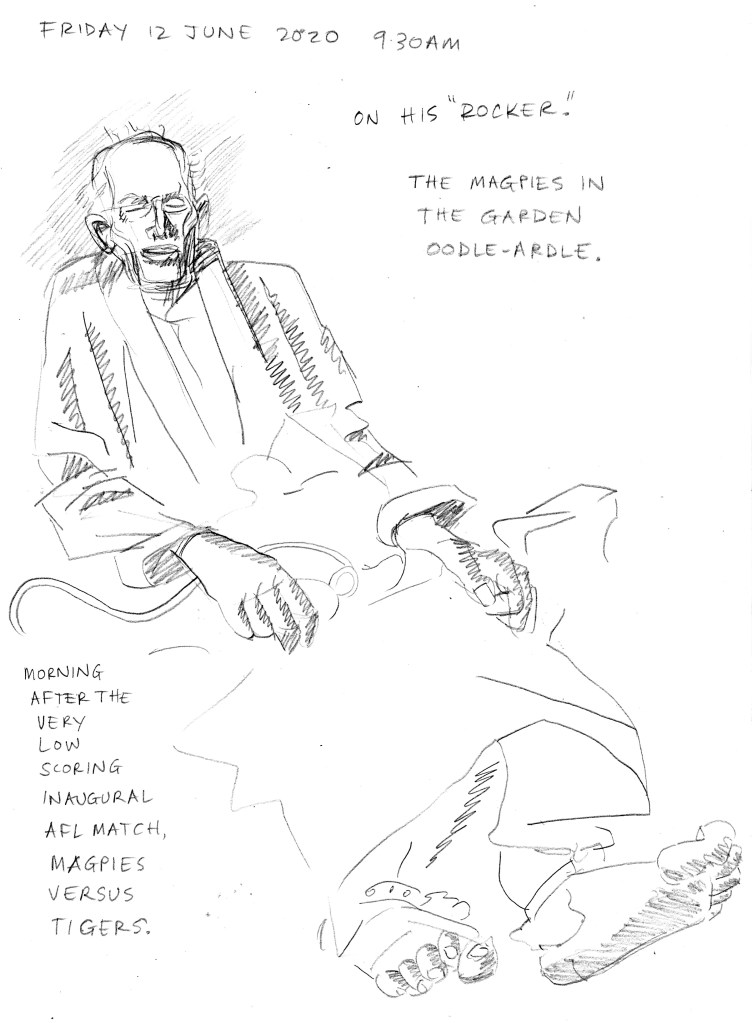 FRIDAY 12 JUNE 2020 9.30AM
ON HIS "ROCKER."
THE MAGPIES IN
THE GARDEN
OODLE-ARDLE.
MORNING
AFTER THE
VERY
LOW
SCORING
INAUGURAL
AFL MATCH,
MAGPIES
VERSUS
TIGERS.